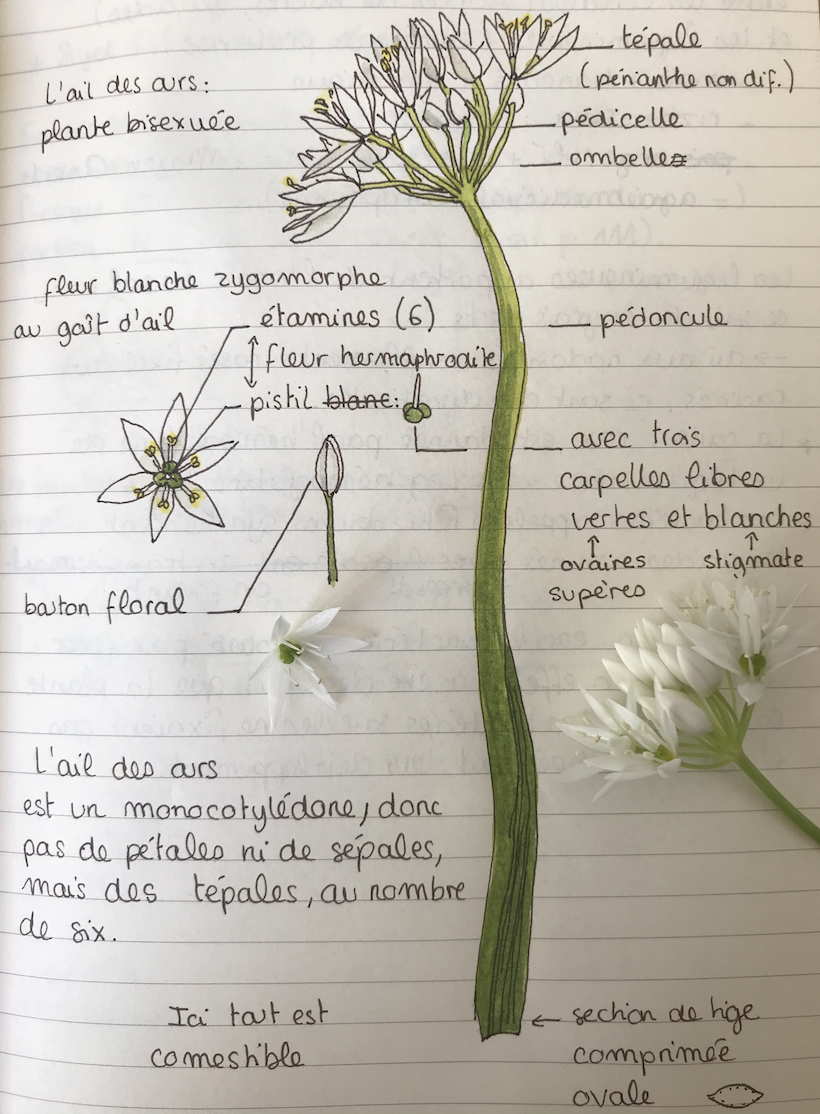 L'ail des ours :
plante bisexuée
tépale
(périanthe non dif.)
pédicelle
ombelle
fleur blanche zygomorphe
au goût d'ail
étamines (6)
fleur hermaphrodite
pistil blanc :
pédoncule
avec trois
carpelles libres
vertes et blanches
ovaires
supères
stigmate
bouton floral
L'ail des ours
est un monocotylédone, donc
pas de pétales ni de sépales,
mais des tépales, au nombre
de six.
Ici tout est
comestible
section de tige
comprimée
ovale